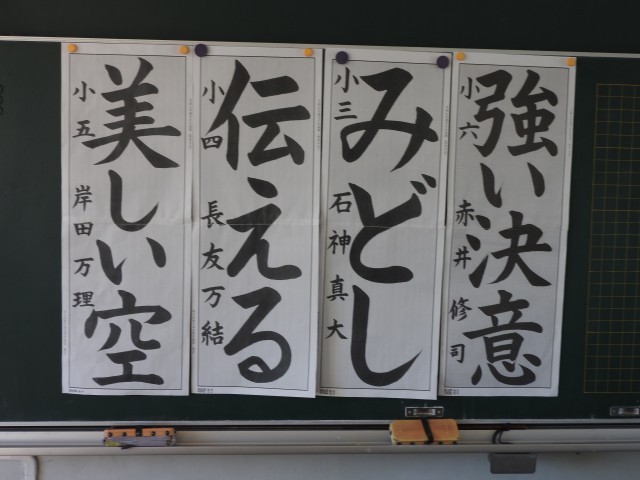 強い決意
小六 赤井修司
みどし
小三 石神真大
伝える
小四 長友万結
美しい空
小五 岸田万理